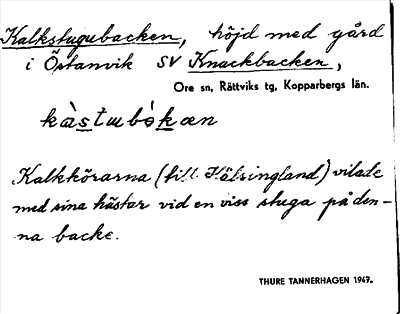 Kalkstugubacken, höjd med gård
i Östanvik SV Knackbacken,
Ore sn, Rättviks tg, Kopparbergs län.
Kalkkörarna (till Hälsingland) vilade
med sina hästar vid en viss stuga på den-
na backe.
THURE TANNERHAGEN 1947.